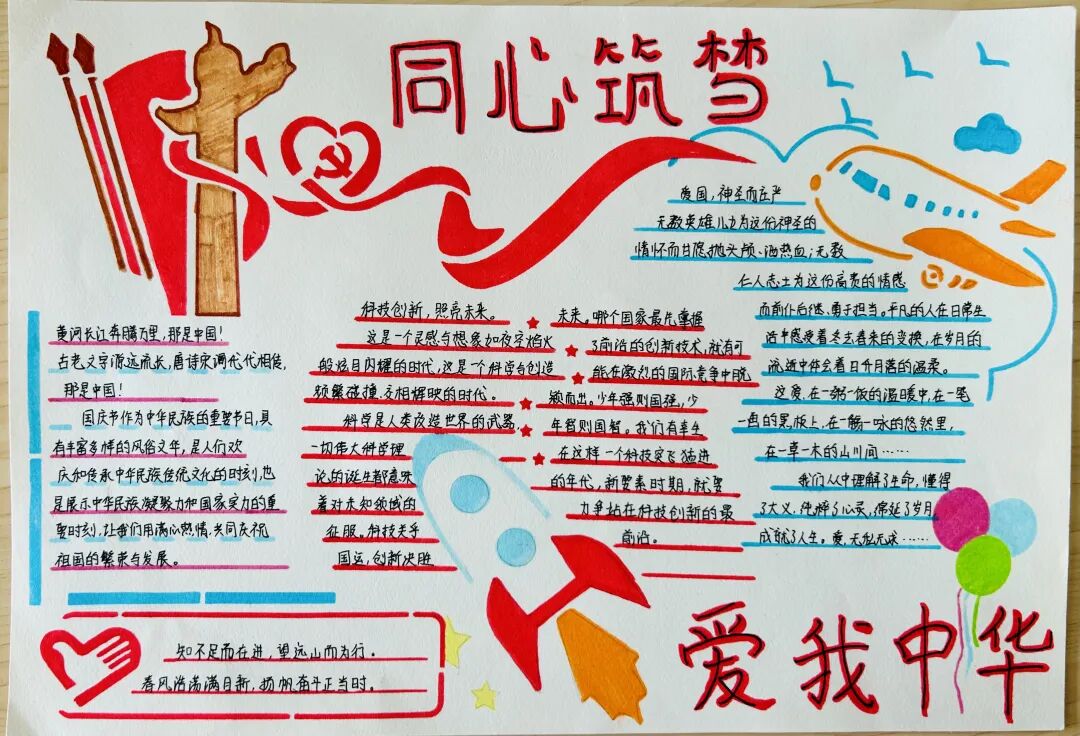 同心筑梦
黄河长江奔腾万里，那是中国！
古老文字源远流长，唐诗宋词代代相传，
那是中国！
国庆节作为中华民族的重要节日，具
有丰富多样的风俗文华，是人们欢
庆和传承中华民族传统文化的时刻，也
是展示中华民族凝聚力和国家实力的重
要时刻，让我们用满心热情，共同庆祝
祖国的繁荣与发展。
知不足而在进，望远山而为行。
春风浩荡满目新，扬帆奋斗正当时。
科技创新，照亮未来。
这是一个灵感与想象如夜空焰火
般炫目闪耀的时代，这是一个科学与创造
频繁碰撞、交相辉映的时代。
科学是人类改造世界的武器，
一切伟大科学理
论的诞生都意味
着对未知领域的
征服。科技关乎
国运，创新决胜
未来。哪个国家最先掌握
了前沿的创新技术，就有可
能在激烈的国际竞争中脱
颖而出。少年强则国强，少
年智则国智。我们有幸生
在这样一个科技突飞猛进
的年代，新要素时期，就要
力争站在科技创新的最
前沿。
爱国，神圣而庄严
无数英雄儿女为这份神圣的
情怀而甘愿抛头颅、洒热血；无数
仁人志士为这份高贵的情感
而前仆后继、勇于担当。平凡的人在日常生
活中感受着冬去春来的变换，在岁月的
流逝中体会着日升月落的温柔。
这爱，在一粥一饭的温暖中，在一笔
一画的黑板上，在一觞一咏的悠然里，
在一草一木的山川间……
我们从中理解了生命，懂得
了大义，纯粹了心灵，绵延了岁月，
成就了人生。爱，无私无求……
爱我中华